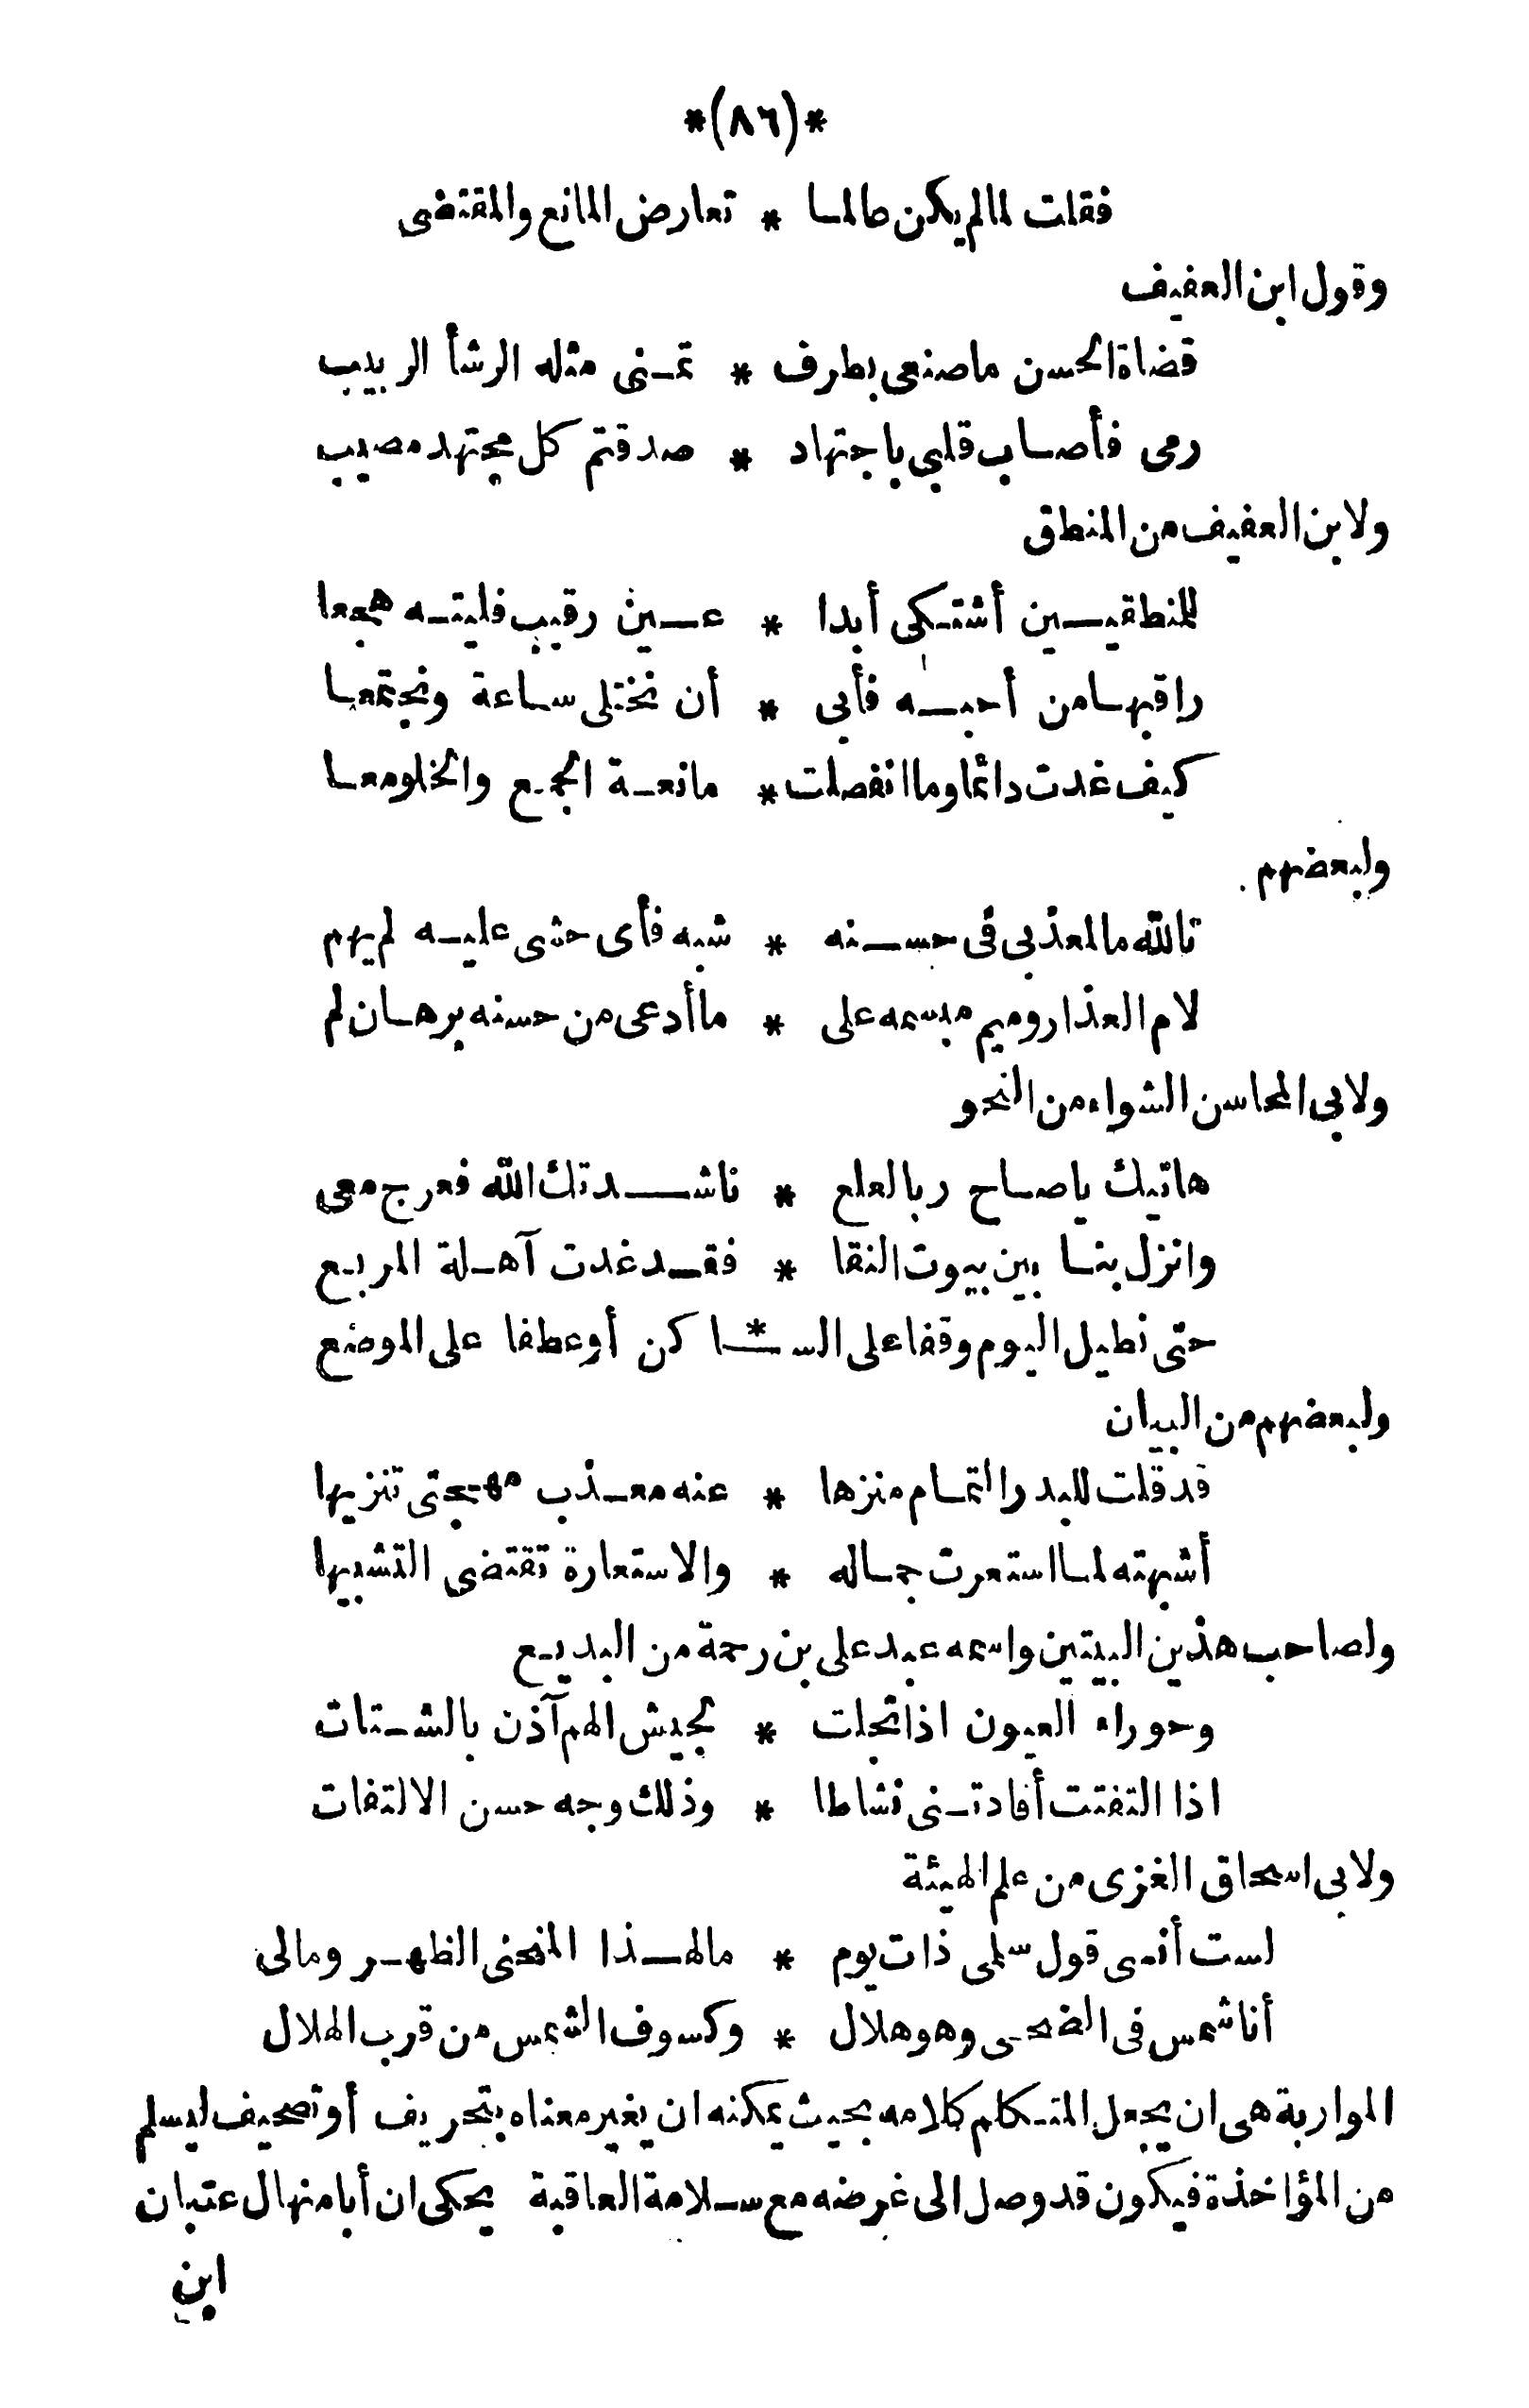 *(٨٦)*
فقلت لما لم يكن طالما * تعارض المانع والمقتضى
وقول ابن العفيف
قضاة الحسن ما صنعى بطرف * تمنى مثله الرشأ الربيب
رمى فأصاب قلبى باجتهاد * صدقتم كل مجتهد مصيب
ولابن العفيف من المنطق
للمنطقيين أشتكى أبدا * عين رقيب فليته هجعا
راقبها من أحبه فأبى * أن نختلى ساعة ونجتمعا
كيف غدت دائما وما انفصلت * مانعة الجمع والخلو معا
ولبعضهم
تالله ما لمعذبى فى حسنه * شبه فأى حشى عليه لم يهم
لام العذار وميم مبسمه على * ما أدعى من حسنه برهان لم
ولابى المحاسن الشواء من النحو
هاتيك يا صاح ربا لعلع * ناشدتك الله فعرج معى
وانزل بنا بين بيوت النقا * فقد غدت آهلة المربع
حتى نطيل اليوم وقفا على الس*اكن أو عطفا على الموضع
ولبعضهم من البيان
قد قلت للبدر التمام منزها * عنه معذب مهجتى تنزيها
أشبهته لما استعرت جماله * والاستعارة تقتضى التشبيها
ولصاحب هذين البيتين واسمه عبد على بن رحمة من البديع
وحوراء العيون اذا تجلت * لجيش الهم آذن بالشتات
اذا التفتت أفادتنى نشاطا * وذلك وجه حسن الالتفات
ولابى اسحاق الغزى من علم الهيئة
لست أنسى قول سلمى ذات يوم * ما لهذا المنحنى الظهر ومالى
أنا شمس فى الضحى وهو هلال * وكسوف الشمس من قرب الهلال
المواربة هى ان يجعل المتكلم كلامه بحيث يمكنه ان يغير معناه بتحريف أو تصحيف ليسلم
من المؤاخذة فيكون قد وصل الى غرضه مع سلامة العاقبة يحكى ان أبا منهال عتبان
ابن